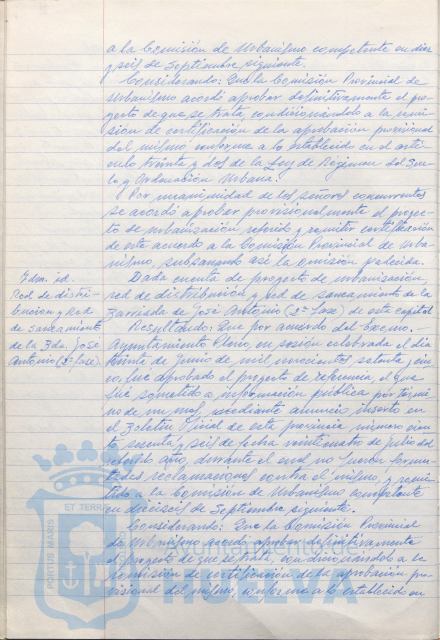 a la Comisión de Urbanismo competente en diez
y seis de Septiembre siguiente.
Considerando: Que la Comisión Provincial de
Urbanismo acordó aprobar definitivamente el pro-
yecto de que se trata, condicionándolo a la remi-
sión de certificación de la aprobación provisional
del mismo conforme a lo establecido en el artí-
culo treinta y dos de la Ley de Régimen del Sue-
lo y Ordenación Urbana.
Por unanimidad de los señores concurrentes
se acordó aprobar provisionalmente el proyec-
to de urbanización referido y remitir certificación
de este acuerdo a la Comisión Provincial de Urba-
nismo, subsanando así la omisión padecida.
Idm. id.
Red de distri-
bucion y red
de saneamiento
de la Bda. José
Antonio (2ª fase).
Dada cuenta de proyecto de urbanización,
red de distribución y red de saneamiento de la
Barriada de José Antonio (2ª fase) de esta capital
Resultando: Que por acuerdo del Excmo.-
Ayuntamiento Pleno, en sesión celebrada el día
treinta de Junio de mil novecientos setenta y cin-
co, fue aprobado el proyecto de referencia, el que
fue sometido a información pública por térmi-
no de un mes, mediante anuncio inserto en
el Boletín Oficial de esta provincia número cien-
to sesenta y seis de fecha veinticuatro de Julio del
referido año, durante el cual no fueron formu-
ladas reclamaciones contra el mismo y remi-
tido a la Comisión de Urbanismo competente
en dieciseis de Septiembre siguiente.
Considerando: Que la Comisión Provincial
de Urbanismo acordó aprobar definitivamente
el proyecto de que se trata, condicionándolo a la
remisión de certificación de la aprobación pro-
visional del mismo, conforme a lo establecido en
PORTUS MARIS
ET TERRAE
Ayuntamiento de
HUELVA